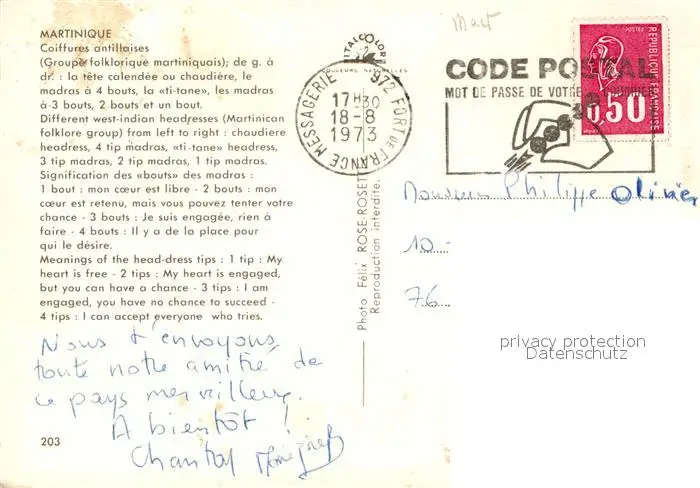 MARTINIQUE
Coiffures antillaises
(Groupe folklorique martiniquais); de g. à
dr. : la tête calendée ou chaudière, le
madras à 4 bouts, la «ti-tane», les madras
à 3 bouts, 2 bouts et un bout.
Different west-indian headresses (Martinican
folklore group) from left to right : chaudiere
headress, 4 tip madras, «ti-tane» headress,
3 tip madras, 2 tip madras, 1 tip madras.
Signification des «bouts» des madras :
1 bout : mon cœur est libre - 2 bouts : mon
cœur est retenu, mais vous pouvez tenter votre
chance - 3 bouts : Je suis engagée, rien à
faire - 4 bouts : Il y a de la place pour
qui le désire.
Meanings of the head-dress tips : 1 tip : My
heart is free - 2 tips : My heart is engaged,
but you can have a chance - 3 tips : I am
engaged, you have no chance to succeed -
4 tips : I can accept everyone who tries.
Nous t'envoyons
toute notre amitié de
ce pays merveilleux.
A bientôt !
Chantal
203
ITALCOLOR
COULEURS NATURELLES
Photo Félix ROSE-ROSET
Reproduction interdite.
972 FORT DE FRANCE MESSAGERIE
17H30
18-8
1973
Mart
CODE POSTAL
MOT DE PASSE DE VOTRE COURRIER
POSTES
REPUBLIQUE FRANÇAISE
0,50
Monsieur Philippe Olivier
10
76
privacy protection
Datenschutz